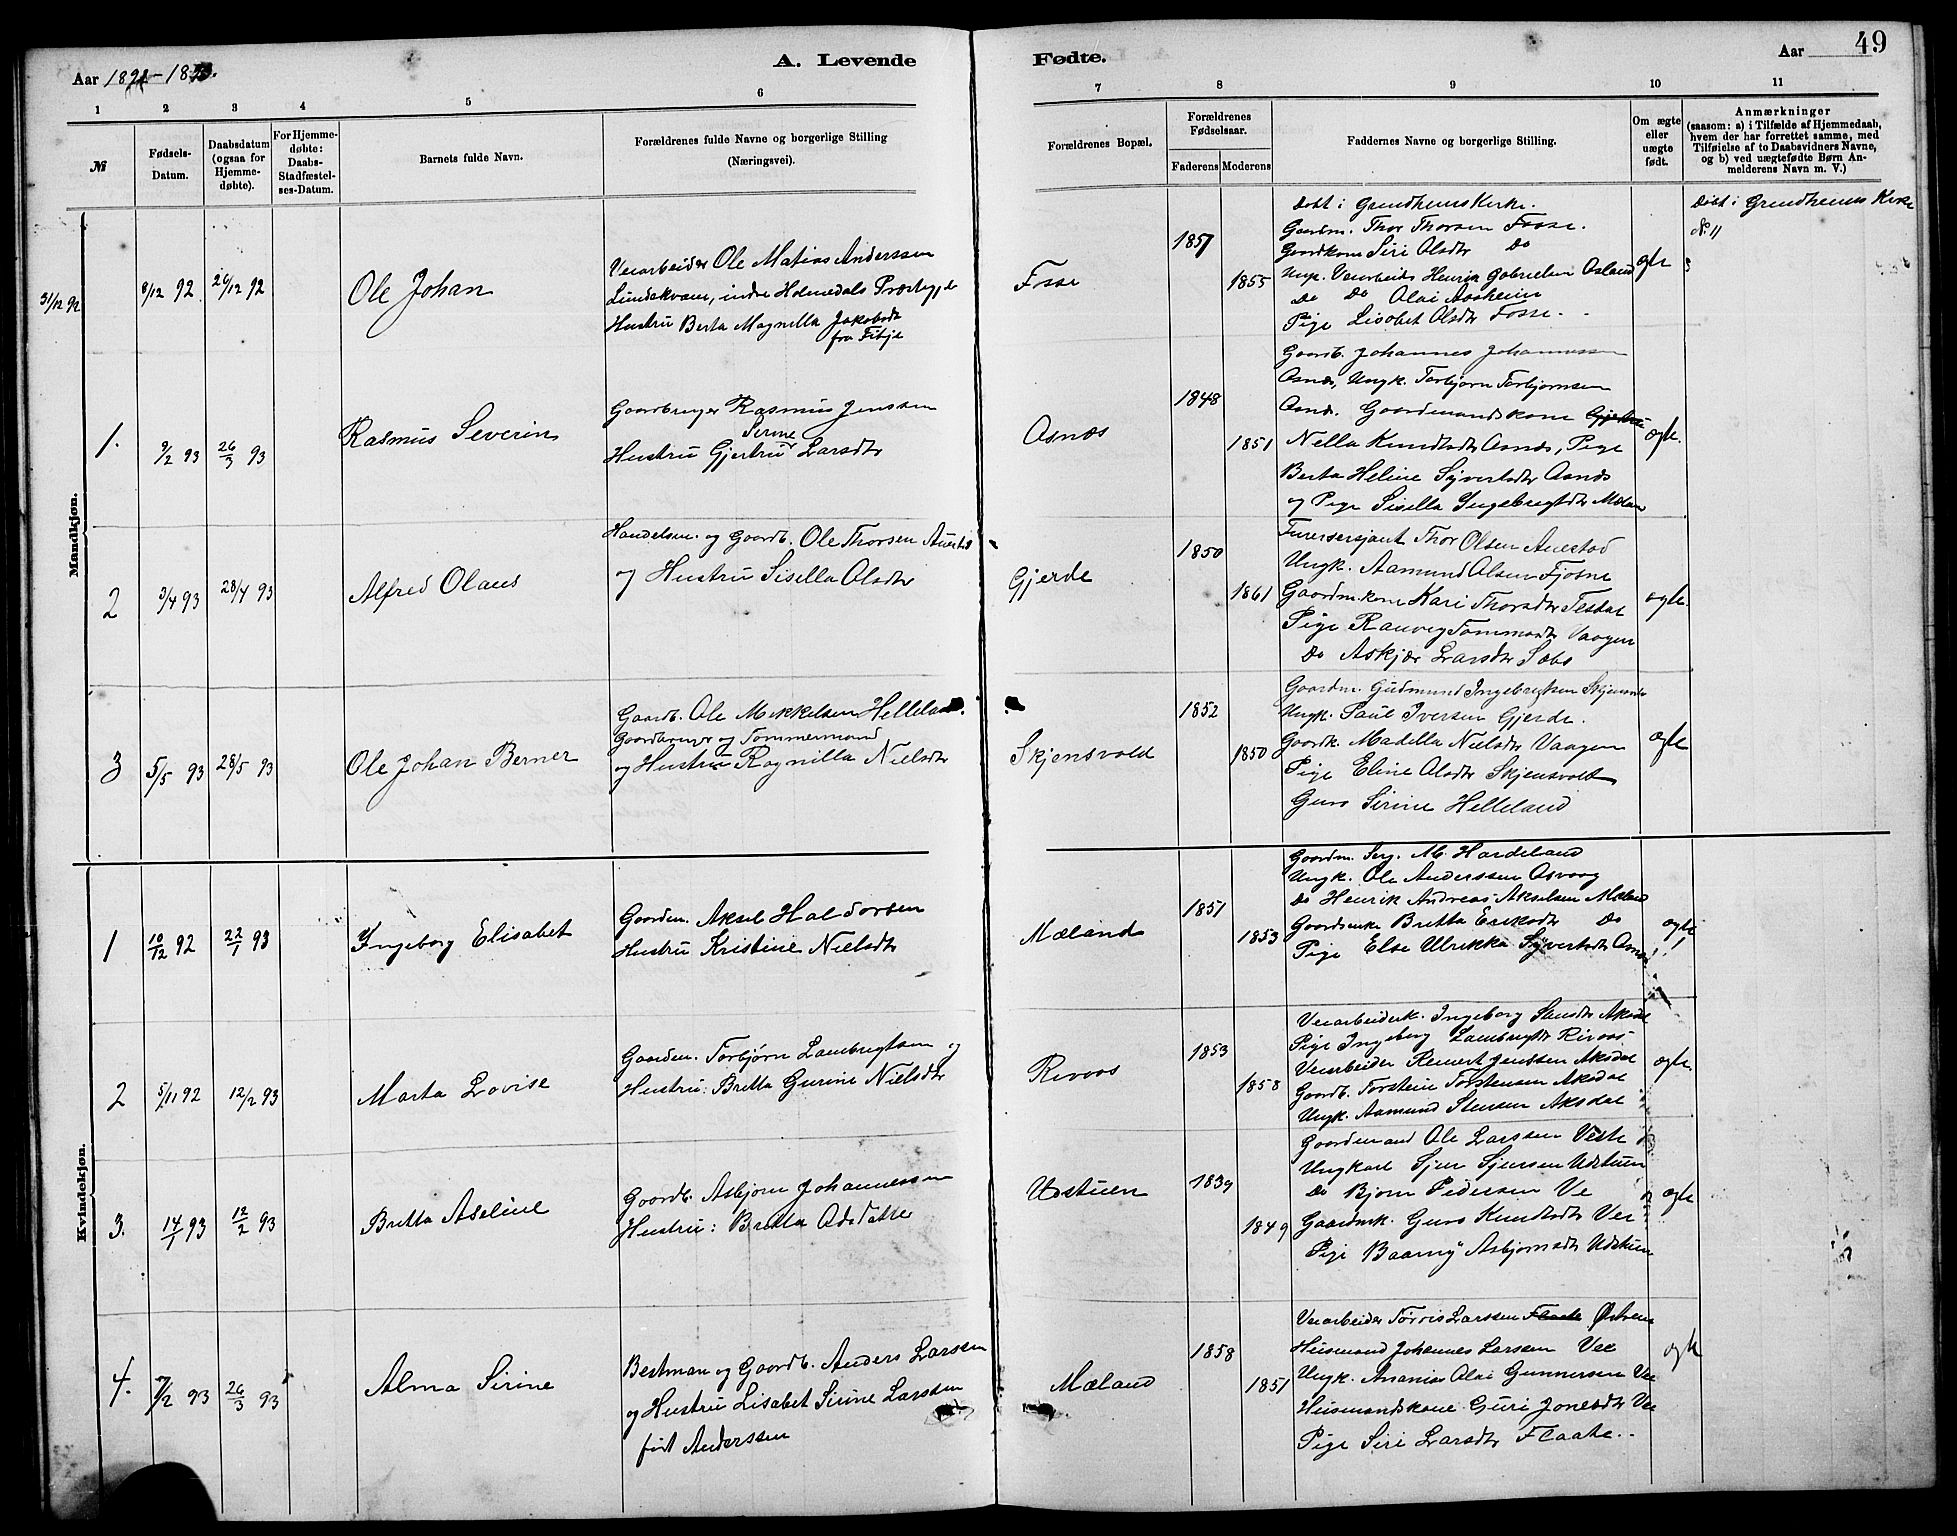 Aar 1892-1893.
A. Levende
Fødte.
Aar
49
1
2
3
4
5
6
7
8
9
10
11
№
Fødsels-
Datum.
Daabsdatum
(ogsaa for
Hjemme-
døbte).
For Hjemme-
døbte:
Daabs-
Stadfæstel-
ses-Datum.
Barnets fulde Navn.
Forældrenes fulde Navne og borgerlige Stilling
(Næringsvei).
Forældrenes Bopæl.
Forældrenes
Fødselsaar.
Faderens
Moderens
Faddernes Navne og borgerlige Stilling.
Om ægte
eller
uægte
født.
Anmærkninger
(saasom: a) i Tilfælde af Hjemmedaab,
hvem der har forrettet samme, med
Tilføielse af to Daabsvidners Navne,
og b) ved uægtefødte Børn An-
melderens Navn m. V.)
Mandkjøn.
31/12 92
8/12 92
26/12 92
Ole Johan
Veiarbeider Ole Matias Anderssen
Lundekvam, indre Holmedals Præstegj.
Hustru Berta Magnilla Jakobsdt
fra Fitje
Fosse
1857
1855
Døbt i Grindheims Kirke.
Gaardm. Thor Thorsen Fosse.
Gaardkone Siri Olsdtr Do
Ungk. Veiarbeid. Henrik Gabrielsen Osland
Do Do Olai Aaheim
Pige Lisabet Olsdtr Fosse.
ægte
Døbt i Grindheims Kirke
No. 11
1.
9/2 93
26/3 93
Rasmus Severin
Gaardbruger Rasmus Jenssen
Serine
Hustru Gjertru Larsdtr
Osnæs
1848
1851
Gaardb. Johannes Johannessen
Osnæs, Ungk. Torbjørn Torbjørnsen
Osnæs. Gaardmandskone Gjertru
Nella Knudsdtr Osnæs, Pige
Berta Heline Syvertsdtr Osnæs
og Pige Sisella Ingebrigtsdtr Mæland
ægte.
2
3/4 93
28/4 93
Alfred Olaus
Handelsm. og Gaardb. Ole Thorsen Auestad
og Hustru Sisella Olsdtr
Gjerde
1850
1861
Furersersjant Thor Olsen Auestad
Ungk. Aamund Olsen Fjøsne
Gaardm.kone Kari Thorsdtr Tesdal
Pige Ranveig Tommasdtr Vaagen
Do Askjær Larsdtr Sæbø
ægte.
3
5/5 93
28/5 93
Ole Johan Berner
Gaardb. Ole Mikkelsen Helleland.
Gaardbruger og Tømmermand
og Hustru Ragnilla Nielsdtr
Skjensvold
1852
1850
Gaardm. Gudmund Ingebrigtsen Skjensv
Ungk. Paul Iversen Gjerde.
Gaardk. Madella Nielsdtr Vaagen
Pige Eline Olsdtr Skjensvold
Guro Serine Helleland
ægte
Kvindekjøn.
1
10/12 92
22/1 93
Ingeborg Elisabet
Gaardm. Aksel Haldorsen
Hustru Kristine Nielsdtr
Mæland
1851
1853
Gaardm. Serj. M. Hardeland
Ungk. Ole Anderssen Osvaag
Do Henrik Andreas Akselsen Mæland
Gaardenke Britta Eriksdtr Do
Pige Else Ulrikke Syvertsdtr Osnæs
ægte
2
5/11 92
12/2 93
Marta Lovise
Gaardm. Torbjørn Lambregtsen og
Hustru: Britta Gurine Nielsdtr
Rivoos
1853
1858
Veiarbeiderk. Ingeborg Larsdtr Aksdal
Pige Ingeborg Lambregtdtr Rivoos
Veiarbeider Reinert Jenssen Aksdal
Gaardb. Torstein Torstensen Aksdal
Ungk. Aamund Stensen Aksdal
ægte.
3.
14/1 93
12/2 93
Britta Aseline
Gaardb. Asbjørn Johannessen
Hustru: Britta Odsdatter
Udstuen
1839
1849
Gaardmand Ole Larssen Veste
Ungkarl Sjur Sjursen Udstuen
Do Bjørn Pedersen Ve
Gaardmk. Guro Knudsdtr Vee
Pige Baarny Asbjørnsdtr Udstuen
ægte
4.
7/2 93
26/3 93
Alma Sirine
Bestman og Gaardb. Anders Larssen
og Hustru Lisabet Sirine Larssen
født Anderssen
Mæland
1858
1851
Veiarbeider Tørris Larssen Flaate
Husmand Johannes Larssen Vee
Ungk. Ananias Olai Gunnersen Vee
Husmandskone Guri Jonesdtr Vee
Pige Siri Larsdtr Flaate.
ægte